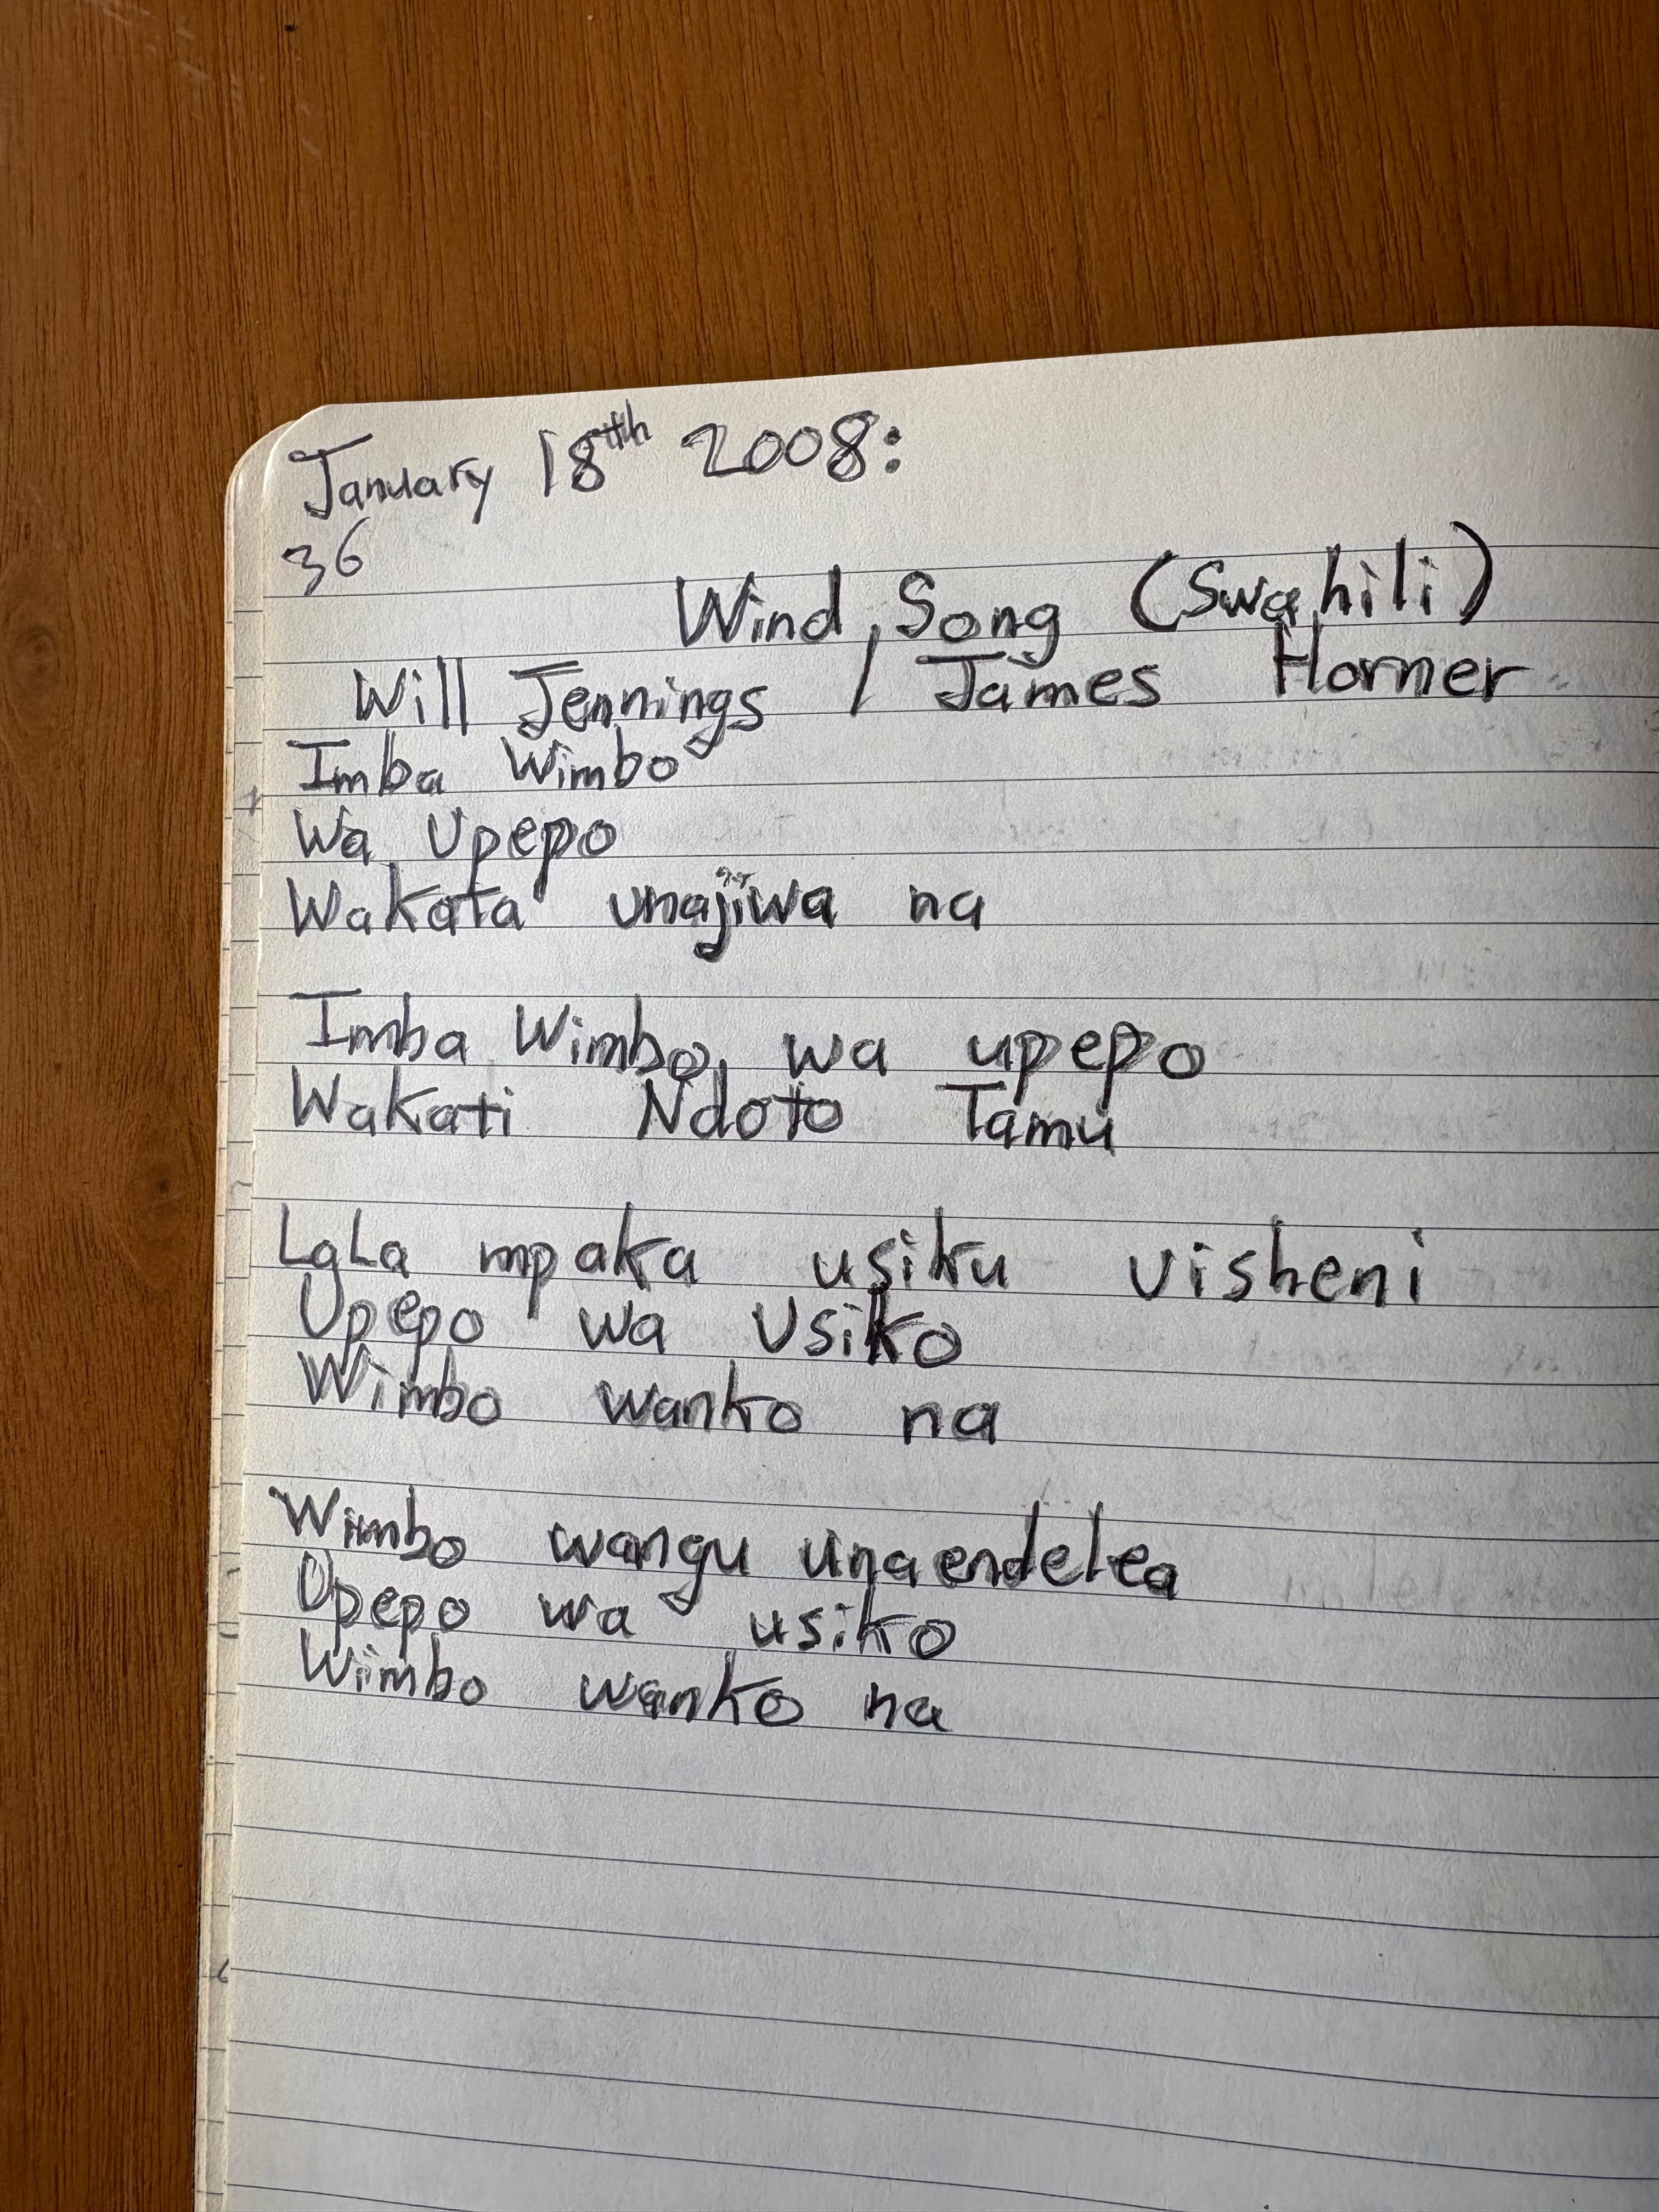 January 18th 2008:
36
Wind Song (Swahili)
Will Jennings / James Horner
Imba Wimbo
Wa Upepo
Wakata unajiwa na
Imba Wimbo wa upepo
Wakati Ndoto Tamu
LaLa mpaka usiku visheni
Upepo wa Usiko
Wimbo wanko na
Wimbo wangu unaendelea
Upepo wa usiko
Wimbo wanko na